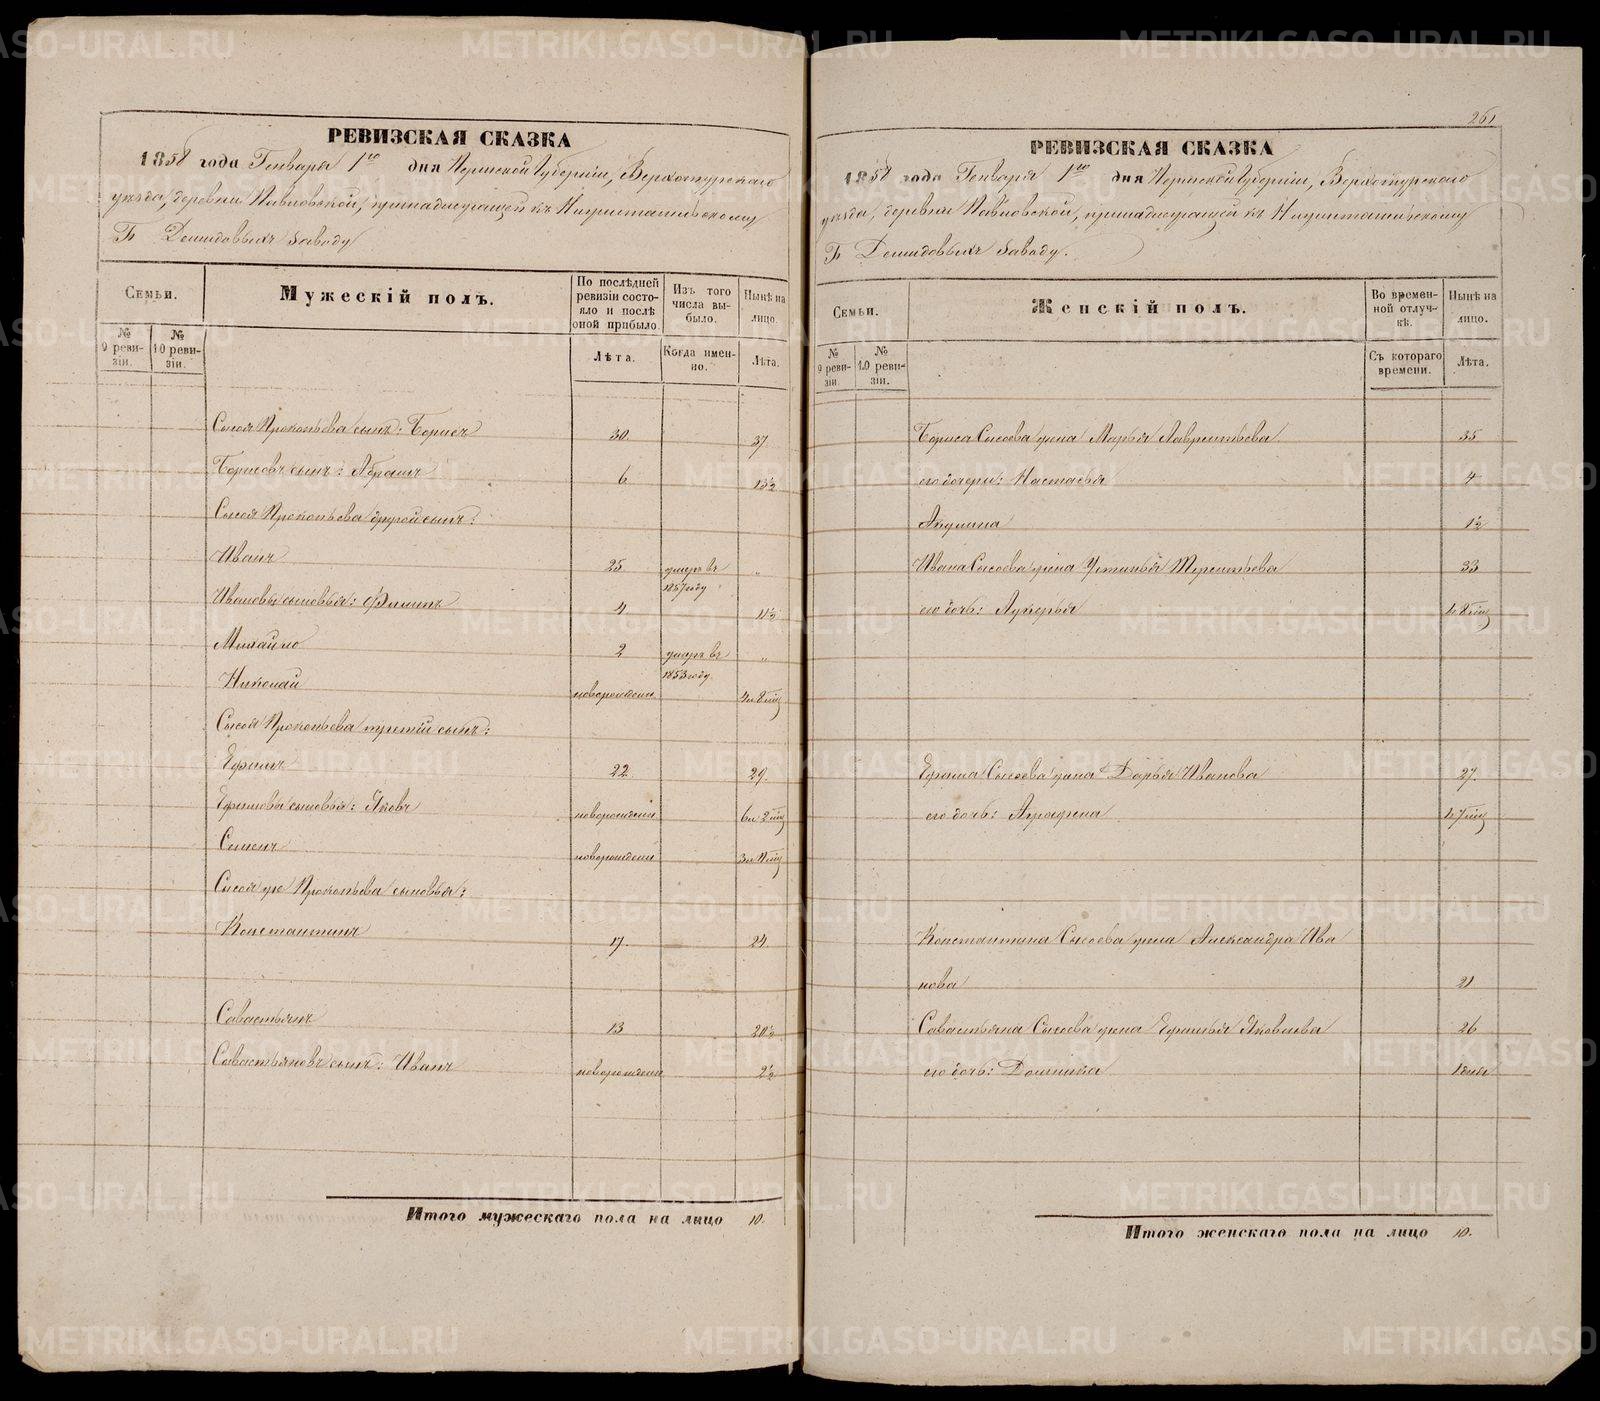 РЕВИЗСКАЯ СКАЗКА
1858 года Генваря 1го дня Пермской Губернiи, Верхотурскаго
уѣзда, деревни Павловской, принадлежащей къ
Г. Демидовыхъ Заводу
Семьи.
Мужескiй полъ.
По послѣдней ревизiи состояло и послѣ оной прибыло.
Изъ того числа выбыло.
Нынѣ на лицо.
№ 9 ревизiи.
№ 10 ревизiи.
Лѣта.
Когда именно.
Лѣта.
Сысоя Прокопьева сынъ: Борисъ 30. 37
Борисовъ сынъ: Абрамъ 6 13½
Сысоя Прокопьева другой сынъ:
Иванъ 25 умеръ въ 1857 году "
Ивановы сыновья: Филипъ 4 11½
Михайло 2 умеръ въ 1853 году "
Николай новорожден. 4 л 8 мѣц
Сысоя Прокопьева третiй сынъ:
Ефимъ 22 29.
Ефимова сыновья: Яковъ новорожден. 6 л 2 мѣц
Семенъ новорожден
Сысоя же Прокопьева сыновья:
Константинъ 17. 24
Савастьянъ 13 20½
Савастьяновъ сынъ: Иванъ новорожден 2½
Итого мужескаго пола на лицо 10.
261
РЕВИЗСКАЯ СКАЗКА
1858 года Генваря 1го дня Пермской Губернiи, Верхотурскаго
уѣзда, деревни Павловской, принадлежащей къ
Г. Демидовыхъ Заводу.
Семьи.
Женскiй полъ.
Во временной отлучкѣ.
Нынѣ на лицо.
№ 9 ревизiи
№ 10 ревизiи.
Съ котораго времени.
Лѣта.
Бориса Сысоева жена Марья Лаврентьева 35
его дочери: Настасья 4
Акулина 1½
Ивана Сысоева жена Устинья Терентьева 33
его дочь: Лукерья
Ефима Сысоева жена Дарья Иванова 27.
его дочь: Аграфена
Константина Сысоева жена Александра Ива
нова 21
Савастьяна Сысоева жена Яковлева 26
его дочь: Домника
Итого женскаго пола на лицо 10.
METRIKI.GASO-URAL.RU